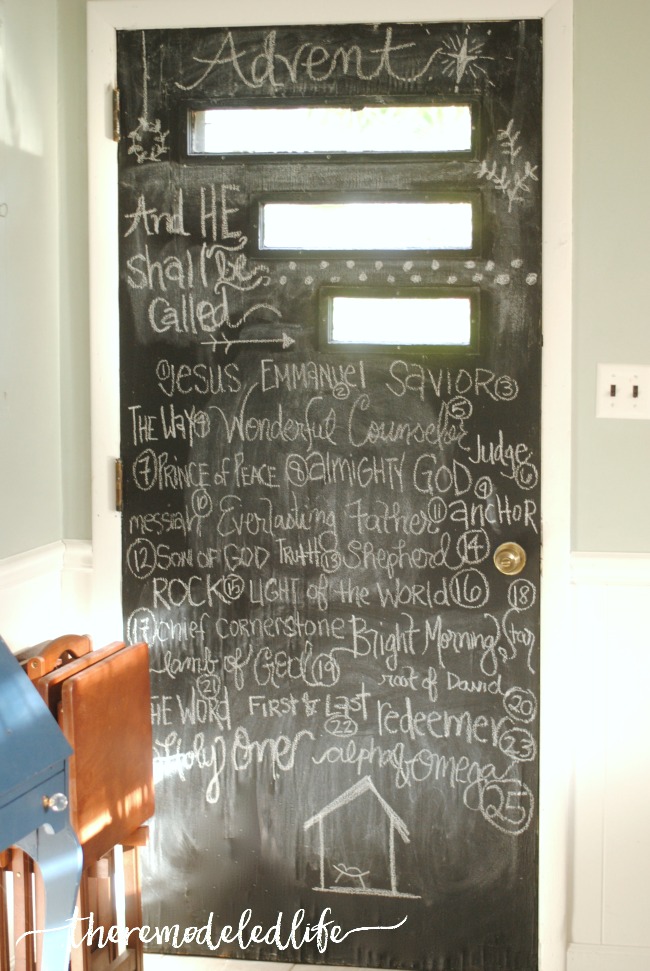 Advent
And HE
shall be
called
① Jesus Emmanuel ② Savior ③
The Way ④ Wonderful Counselor ⑤ Judge ⑥
⑦ Prince of Peace ⑧ almighty God ⑨
messiah ⑩ Everlasting Father ⑪ anchor
⑫ Son of God Truth ⑬ Shepherd ⑭
Rock ⑮ Light of the World ⑯
⑰ chief cornerstone Bright Morning Star ⑱
lamb of God ⑲ root of David ⑳
㉑ The Word First & Last ㉒ redeemer ㉓
Holy One alpha & omega ㉕
theremodeledlife